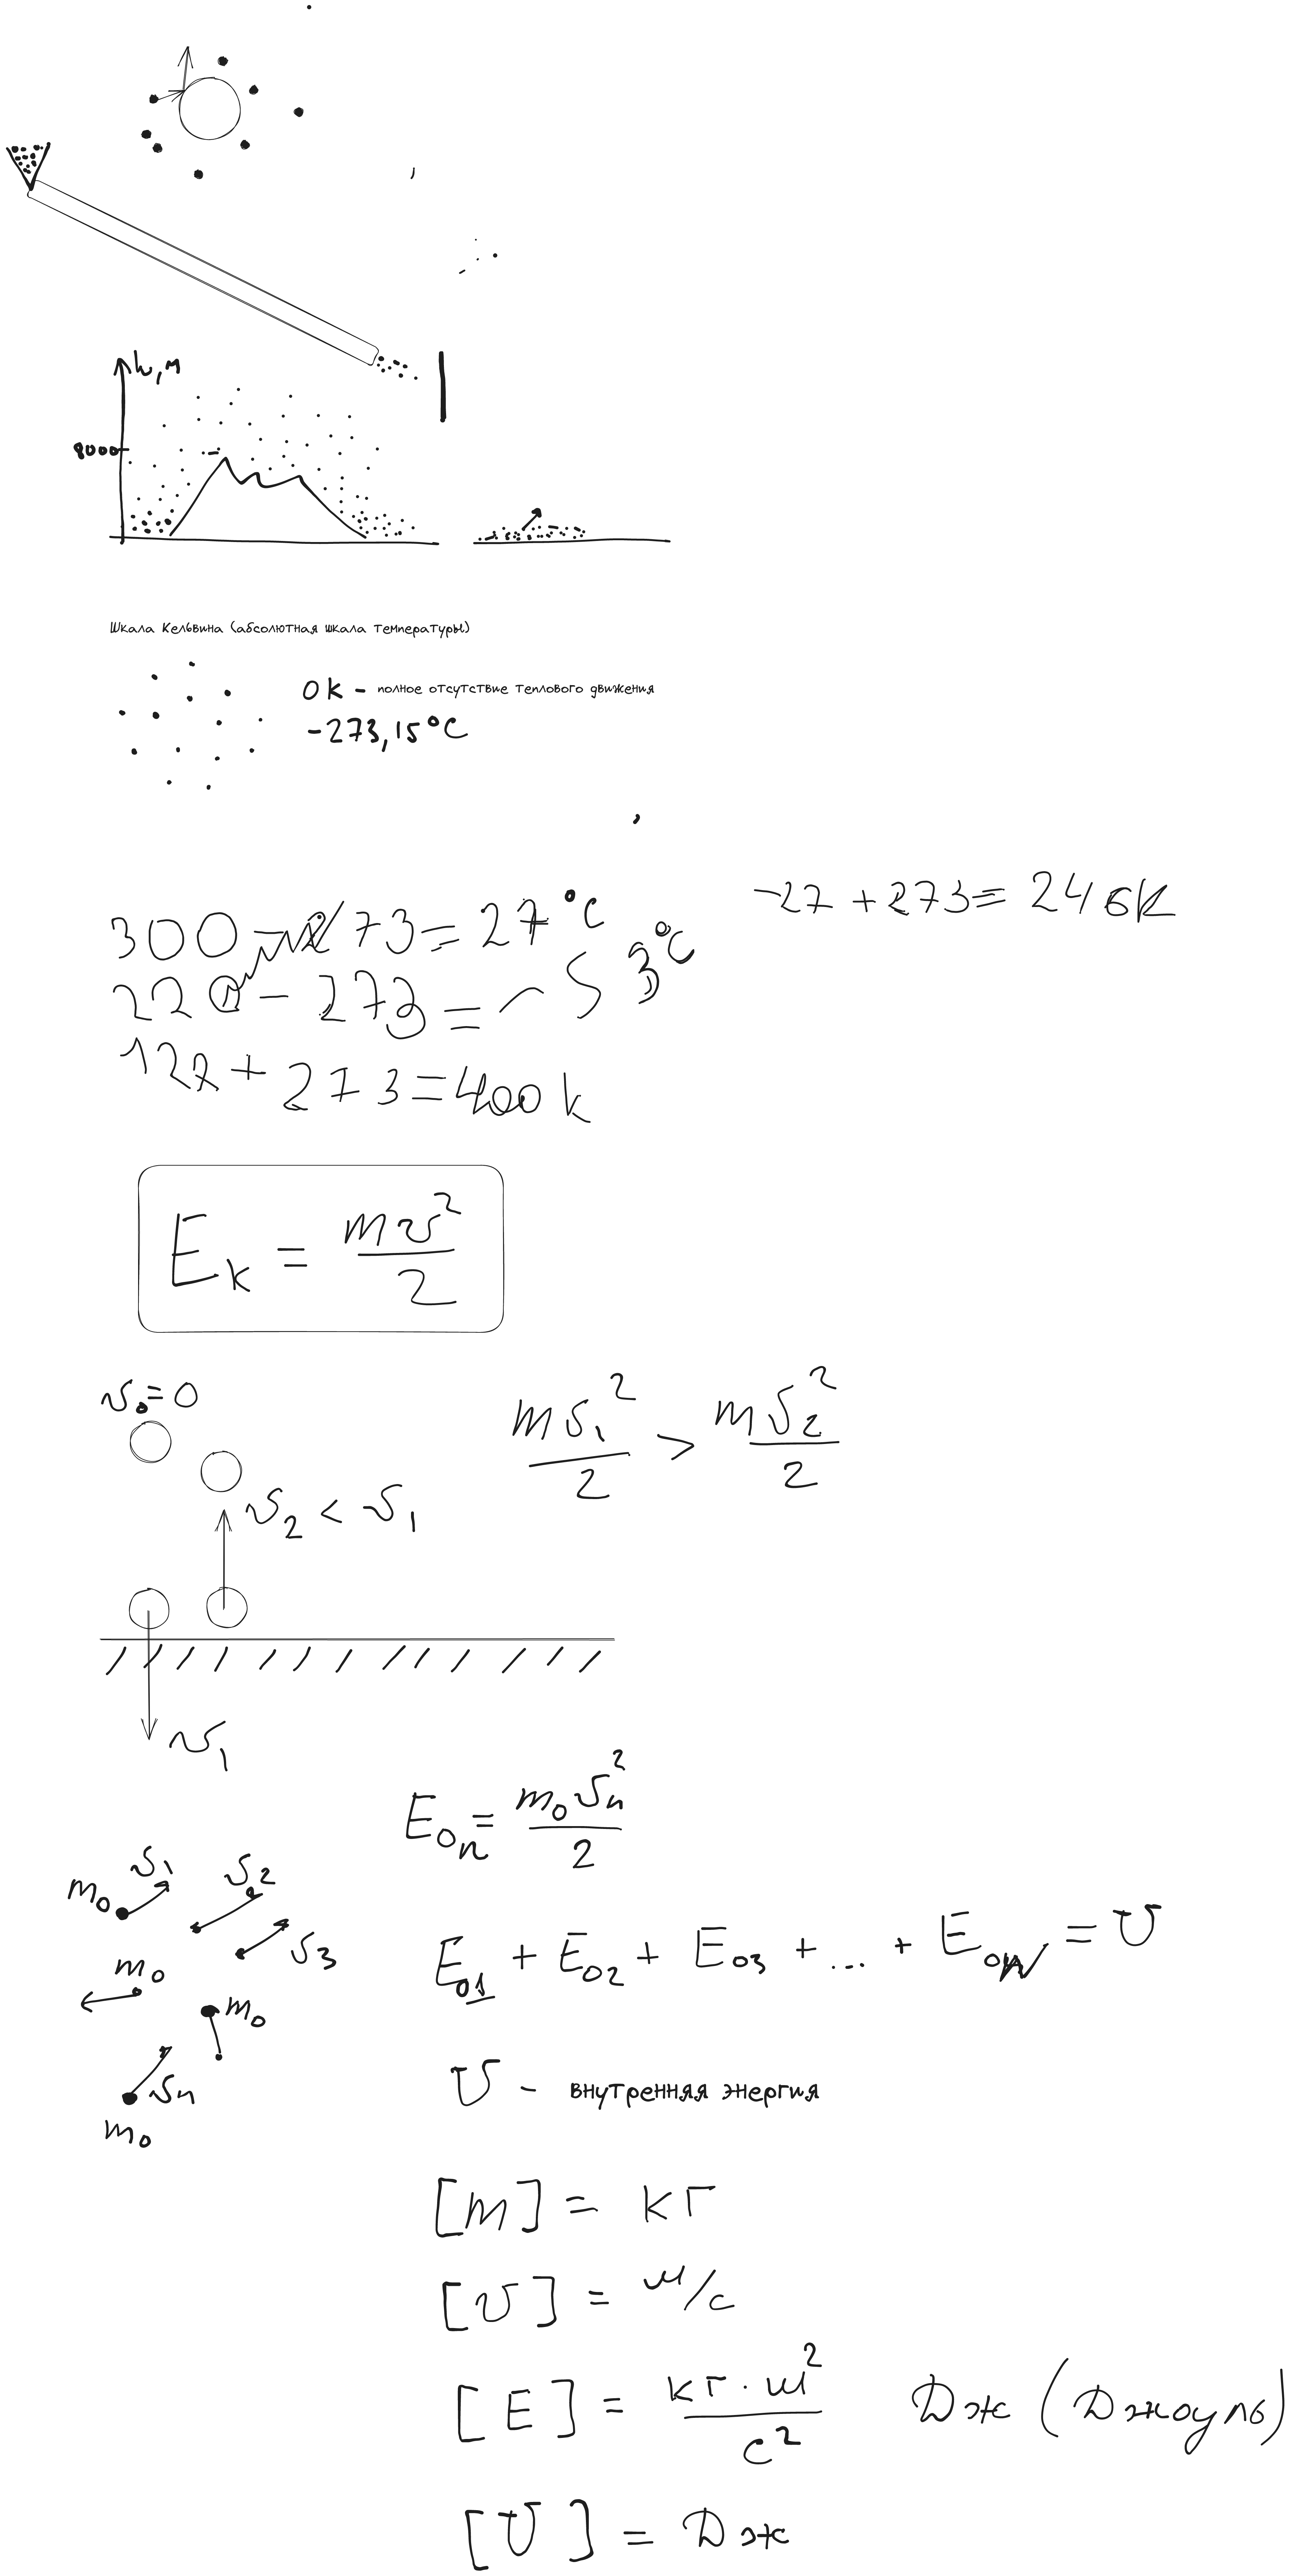 h, м
8000
Шкала Кельвина (абсолютная шкала температуры)
0 К - полное отсутствие теплового движения
-273,15°C
-27 + 273 = 246К
300 - 273 = 27°C
220 - 273 = -53°C
127 + 273 = 400 К
E_к = mv²/2
v₀ = 0
mv₁²/2 > mv₂²/2
v₂ < v₁
v₁
E₀ₙ = m₀vₙ²/2
m₀ v₁ v₂
v₃
E₀₁ + E₀₂ + E₀₃ + ... + E₀N = U
m₀
m₀
vₙ
m₀
U - внутренняя энергия
[m] = кг
[v] = м/с
[E] = кг·м²/с² Дж (Джоуль)
[U] = Дж